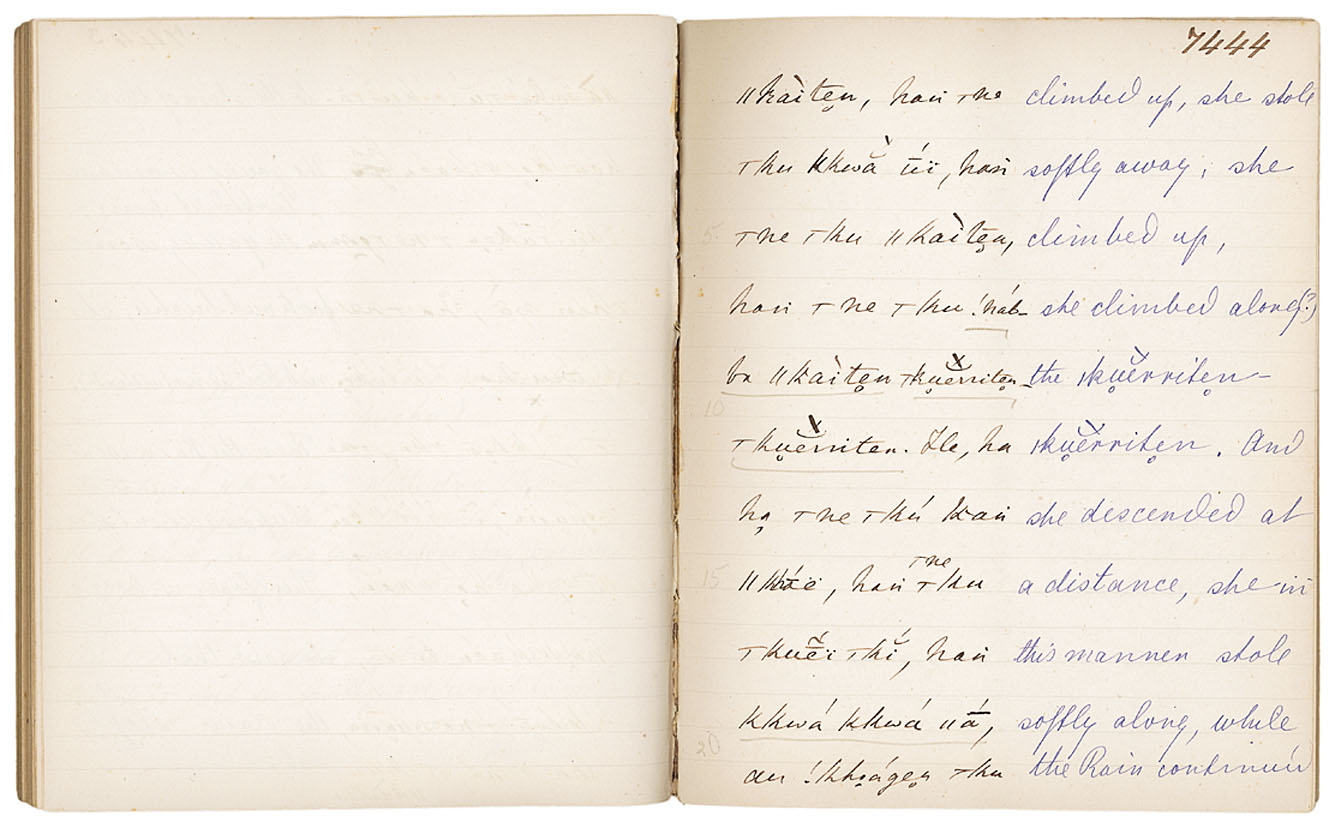 7444
ǁkàitẹn, haṅ ⊤ne climbed up, she stole
⊤ku kkwằ ū́ï, haṅ softly away; she
5. ⊤ne ⊤ku ǁkàitẹn, climbed up,
haṅ ⊤ne ⊤ku !háb- she climbed along(?)
ba ǁkàitẹn ⊤kụĕ̀rritẹn- the ⊤kụĕ̀rritẹn-
10 ⊤kụĕ̀rriten. Ile, ha ⊤kụĕ̀rritẹn. And
hạ ⊤ne ⊤kú kaṅ she descended at
⊤ne
15 haṅ ⊤ku a distance, she in
haṅ this manner stole
kkwá kkwá ǁā́, softly along, while
20 au !khwágẹn ⊤ku the Rain continued